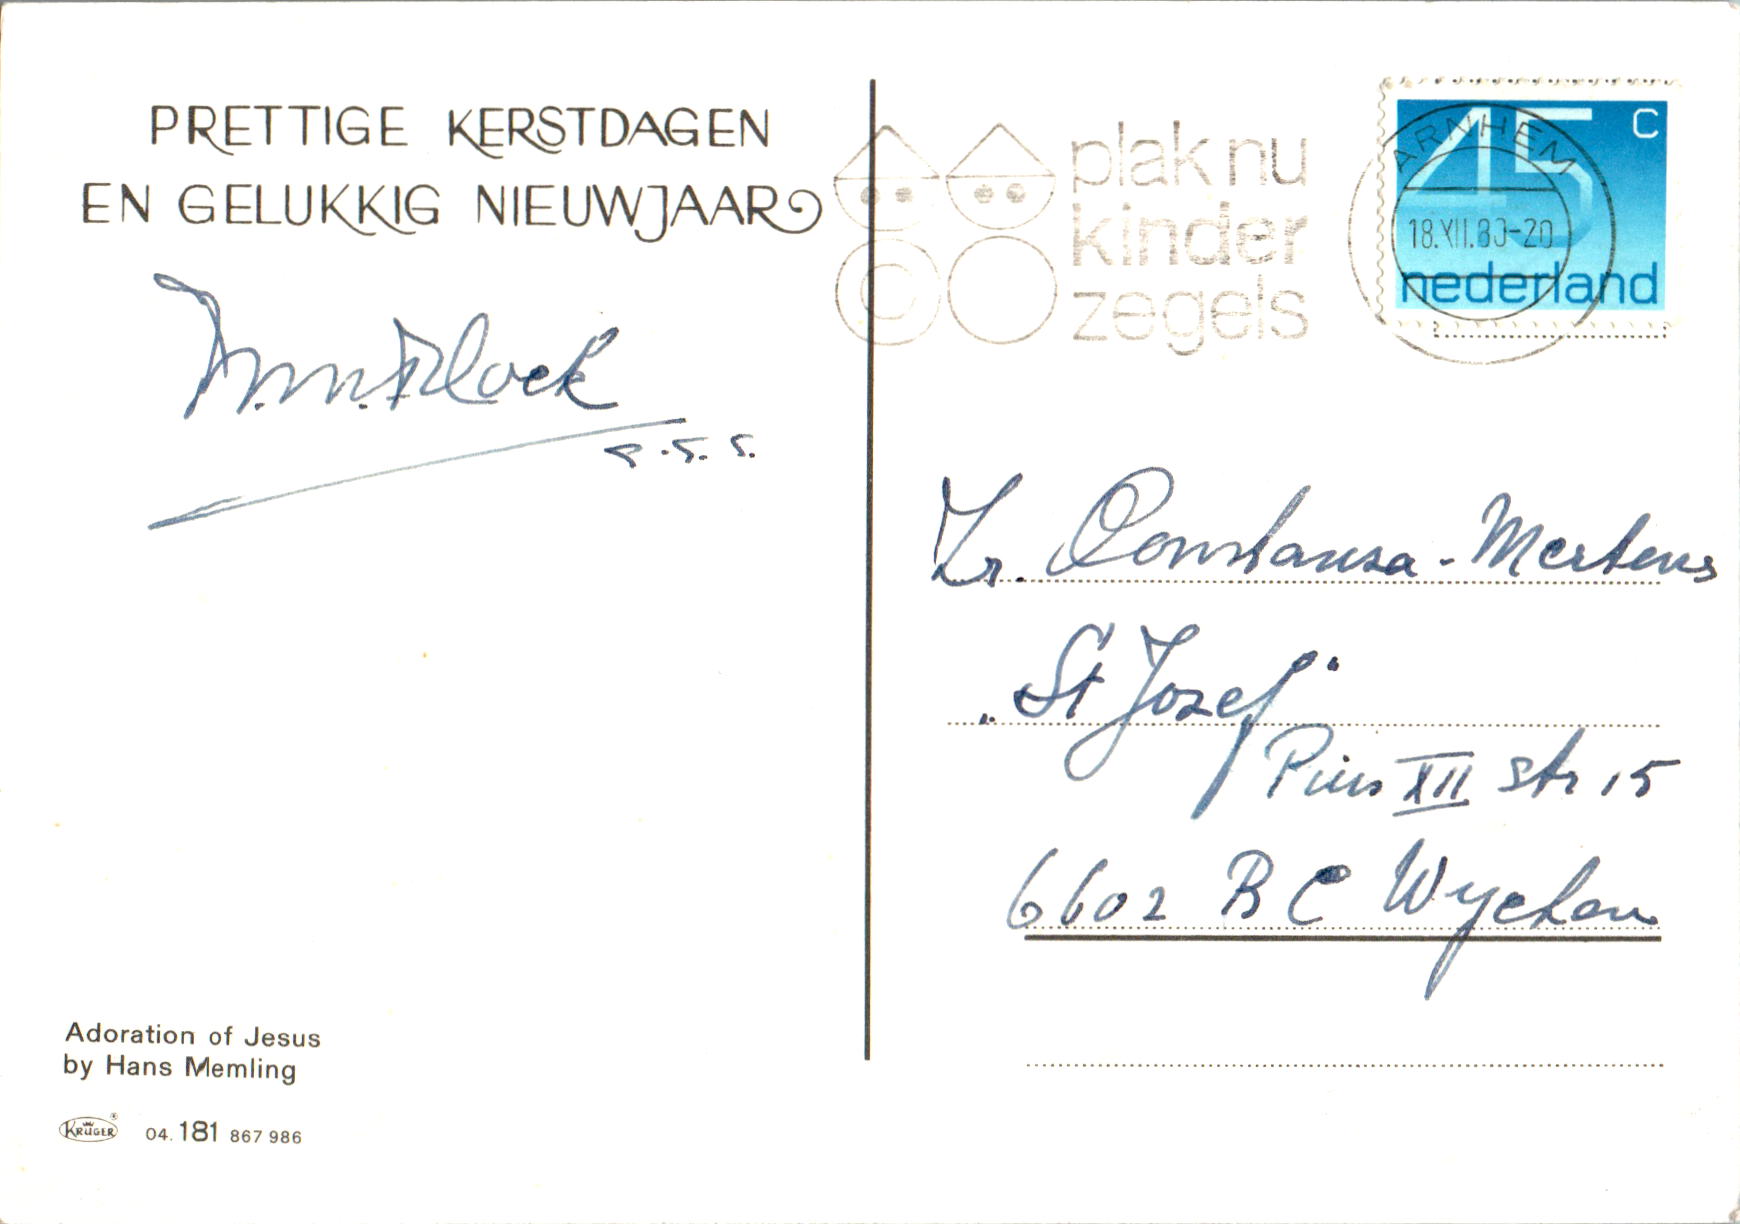 PRETTIGE KERSTDAGEN
EN GELUKKIG NIEUWJAAR
s.s.s.
Adoration of Jesus
by Hans Memling
KRÜGER ® 04.181 867 986
plak nu
kinder
zegels
ARNHEM
18.XII.80-20
45 c
nederland
Zr. Constansa - Mertens
„St Jozef"
Pius XII str 15
6602 BC Wychen